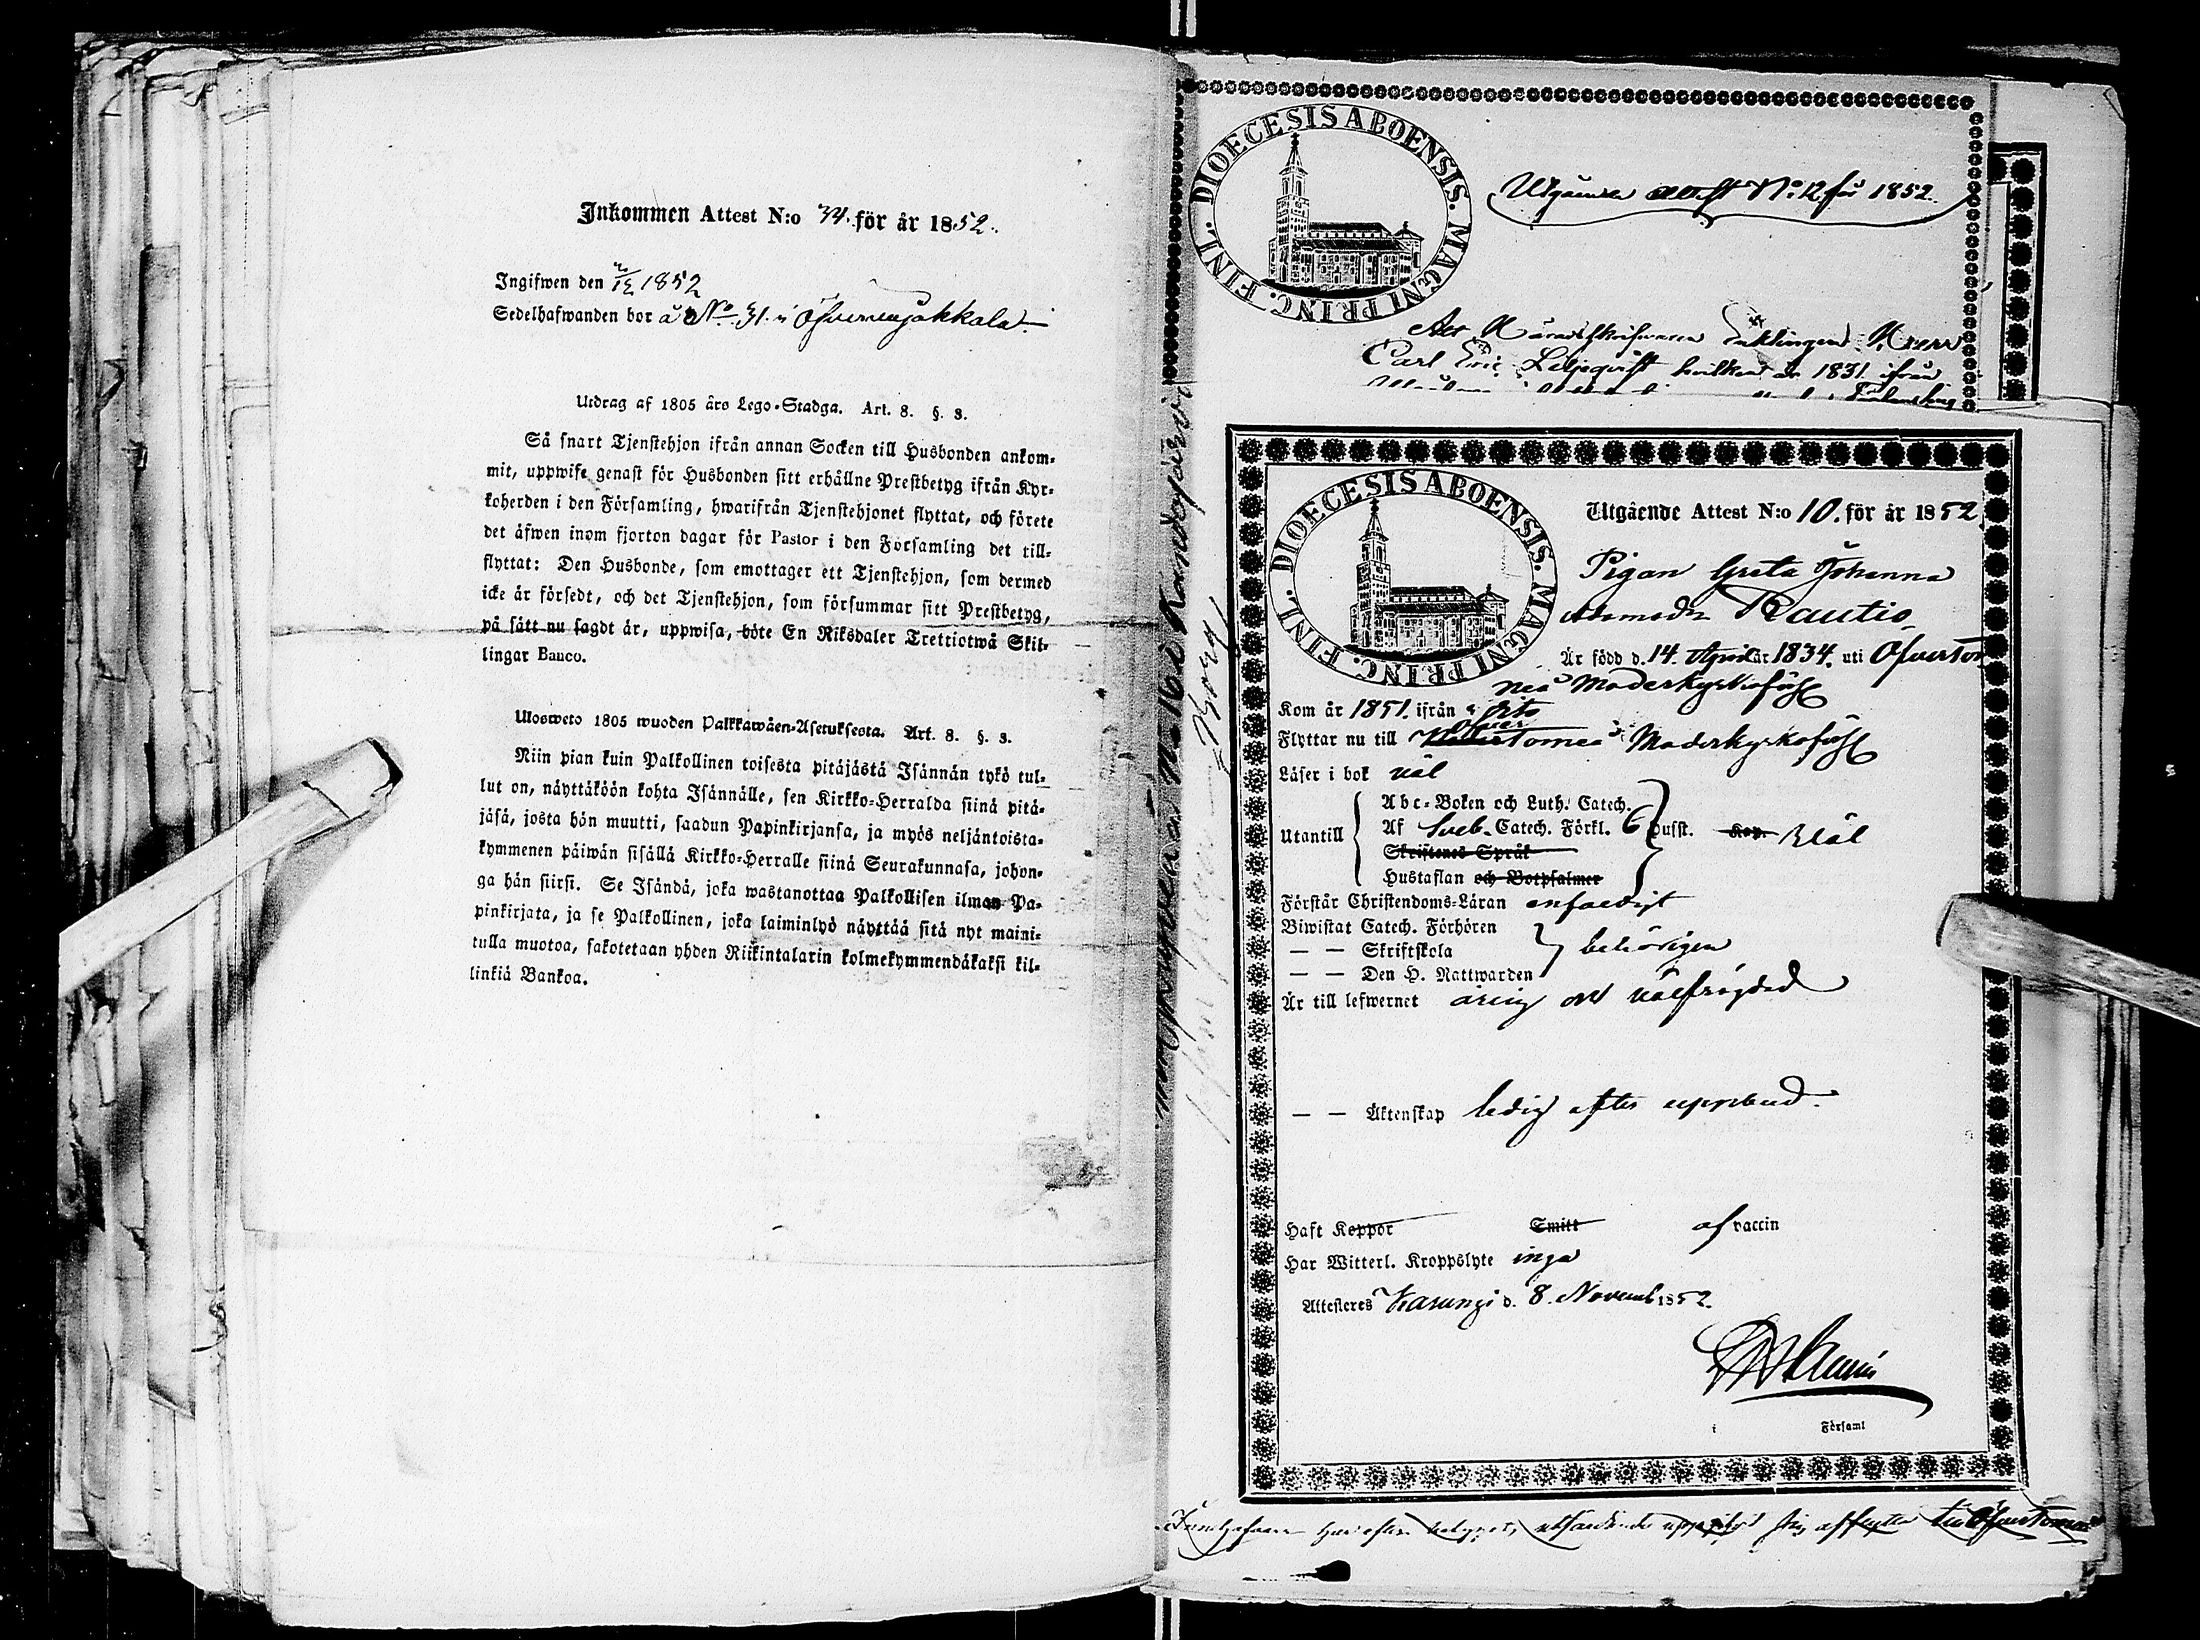 Inkommen Attest N:o 34. för år 1852.
Ingifwen den 1852
Sedelhafwanden bor å No 31. i Öfvervojakkala
Utdrag af 1805 års Lego-Stadga. Art. 8. §. 3.
Så snart Tjenstehjon ifrån annan Socken till Husbonden ankom-
mit, uppwise genast för Husbonden sitt erhållne Prestbetyg ifrån Kyr-
koherden i den Församling, hwarifrån Tjenstehjonet flyttat, och förete
det äfwen inom fjorton dagar för Pastor i den Församling det till-
flyttat: Den Husbonde, som emottager ett Tjenstehjon, som dermed
icke är försedt, och det Tjenstehjon, som försummar sitt Prestbetyg,
på sätt nu sagdt är, uppwisa, böte En Riksdaler Trettiotwå Skil-
lingar Banco.
Ulosweto 1805 wuoden Palkkawäen-Asetuksesta. Art. 8. §. 3.
Niin pian kuin Palkollinen toisesta pitäjästä Isännän tykö tul-
lut on, näyttäköön kohta Isännälle, sen Kirkko-Herralda siinä pitä-
jäsä, josta hän muutti, saadun Papinkirjansa, ja myös neljäntoista-
kymmenen päiwän sisällä Kirkko-Herralle siinä Seurakunnasa, johon-
ga hän siirsi. Se Isändä, joka wastanottaa Palkollisen ilman Pa-
pinkirjata, ja se Palkollinen, joka laiminlyö näyttää sitä nyt maini-
tulla muotoa, sakotetaan yhden Riikintalarin kolmekymmendäkaksi kil-
linkiä Bankoa.
DIOECESIS ABOENSIS. MAGNI PRINC. FINL.
Utgående attest No: 12 för 1852.
Herr
Carl Eric Liljeqvist hvilken år 1831 ifrån
DIOECESIS ABOENSIS. MAGNI PRINC. FINL.
Utgående Attest N:o 10. för år 1852.
Pigan Greta Johanna
Adamsdr Rautio
Är född d. 14. April år 1834. uti Öfvertor
neå Moderkyrkoförs
Kom år 1851. ifrån dito
Flyttar nu till Öfver Torneå Moderkyrkoförs
Läser i bok väl
Utantill
Abc-Boken och Luth. Catech.
Af Sveb. Catech. Förkl. 6 hufst. Kap. väl
Skriftenes Språk
Hustaflan och Botpsalmer
Förstår Christendoms-Läran enfaldigt
Biwistat Catech. Förhören
— — Skriftskola behörigen
— — Den H. Nattwarden
Är till lefwernet ärlig och välfrägdad
— — Äktenskap ledig efter uppbud.
Haft Koppor Smitt af vaccin
Har Witterl. Kroppslyte inga
Attesteres Karungi d. 8. Novemb 1852.
i Församl